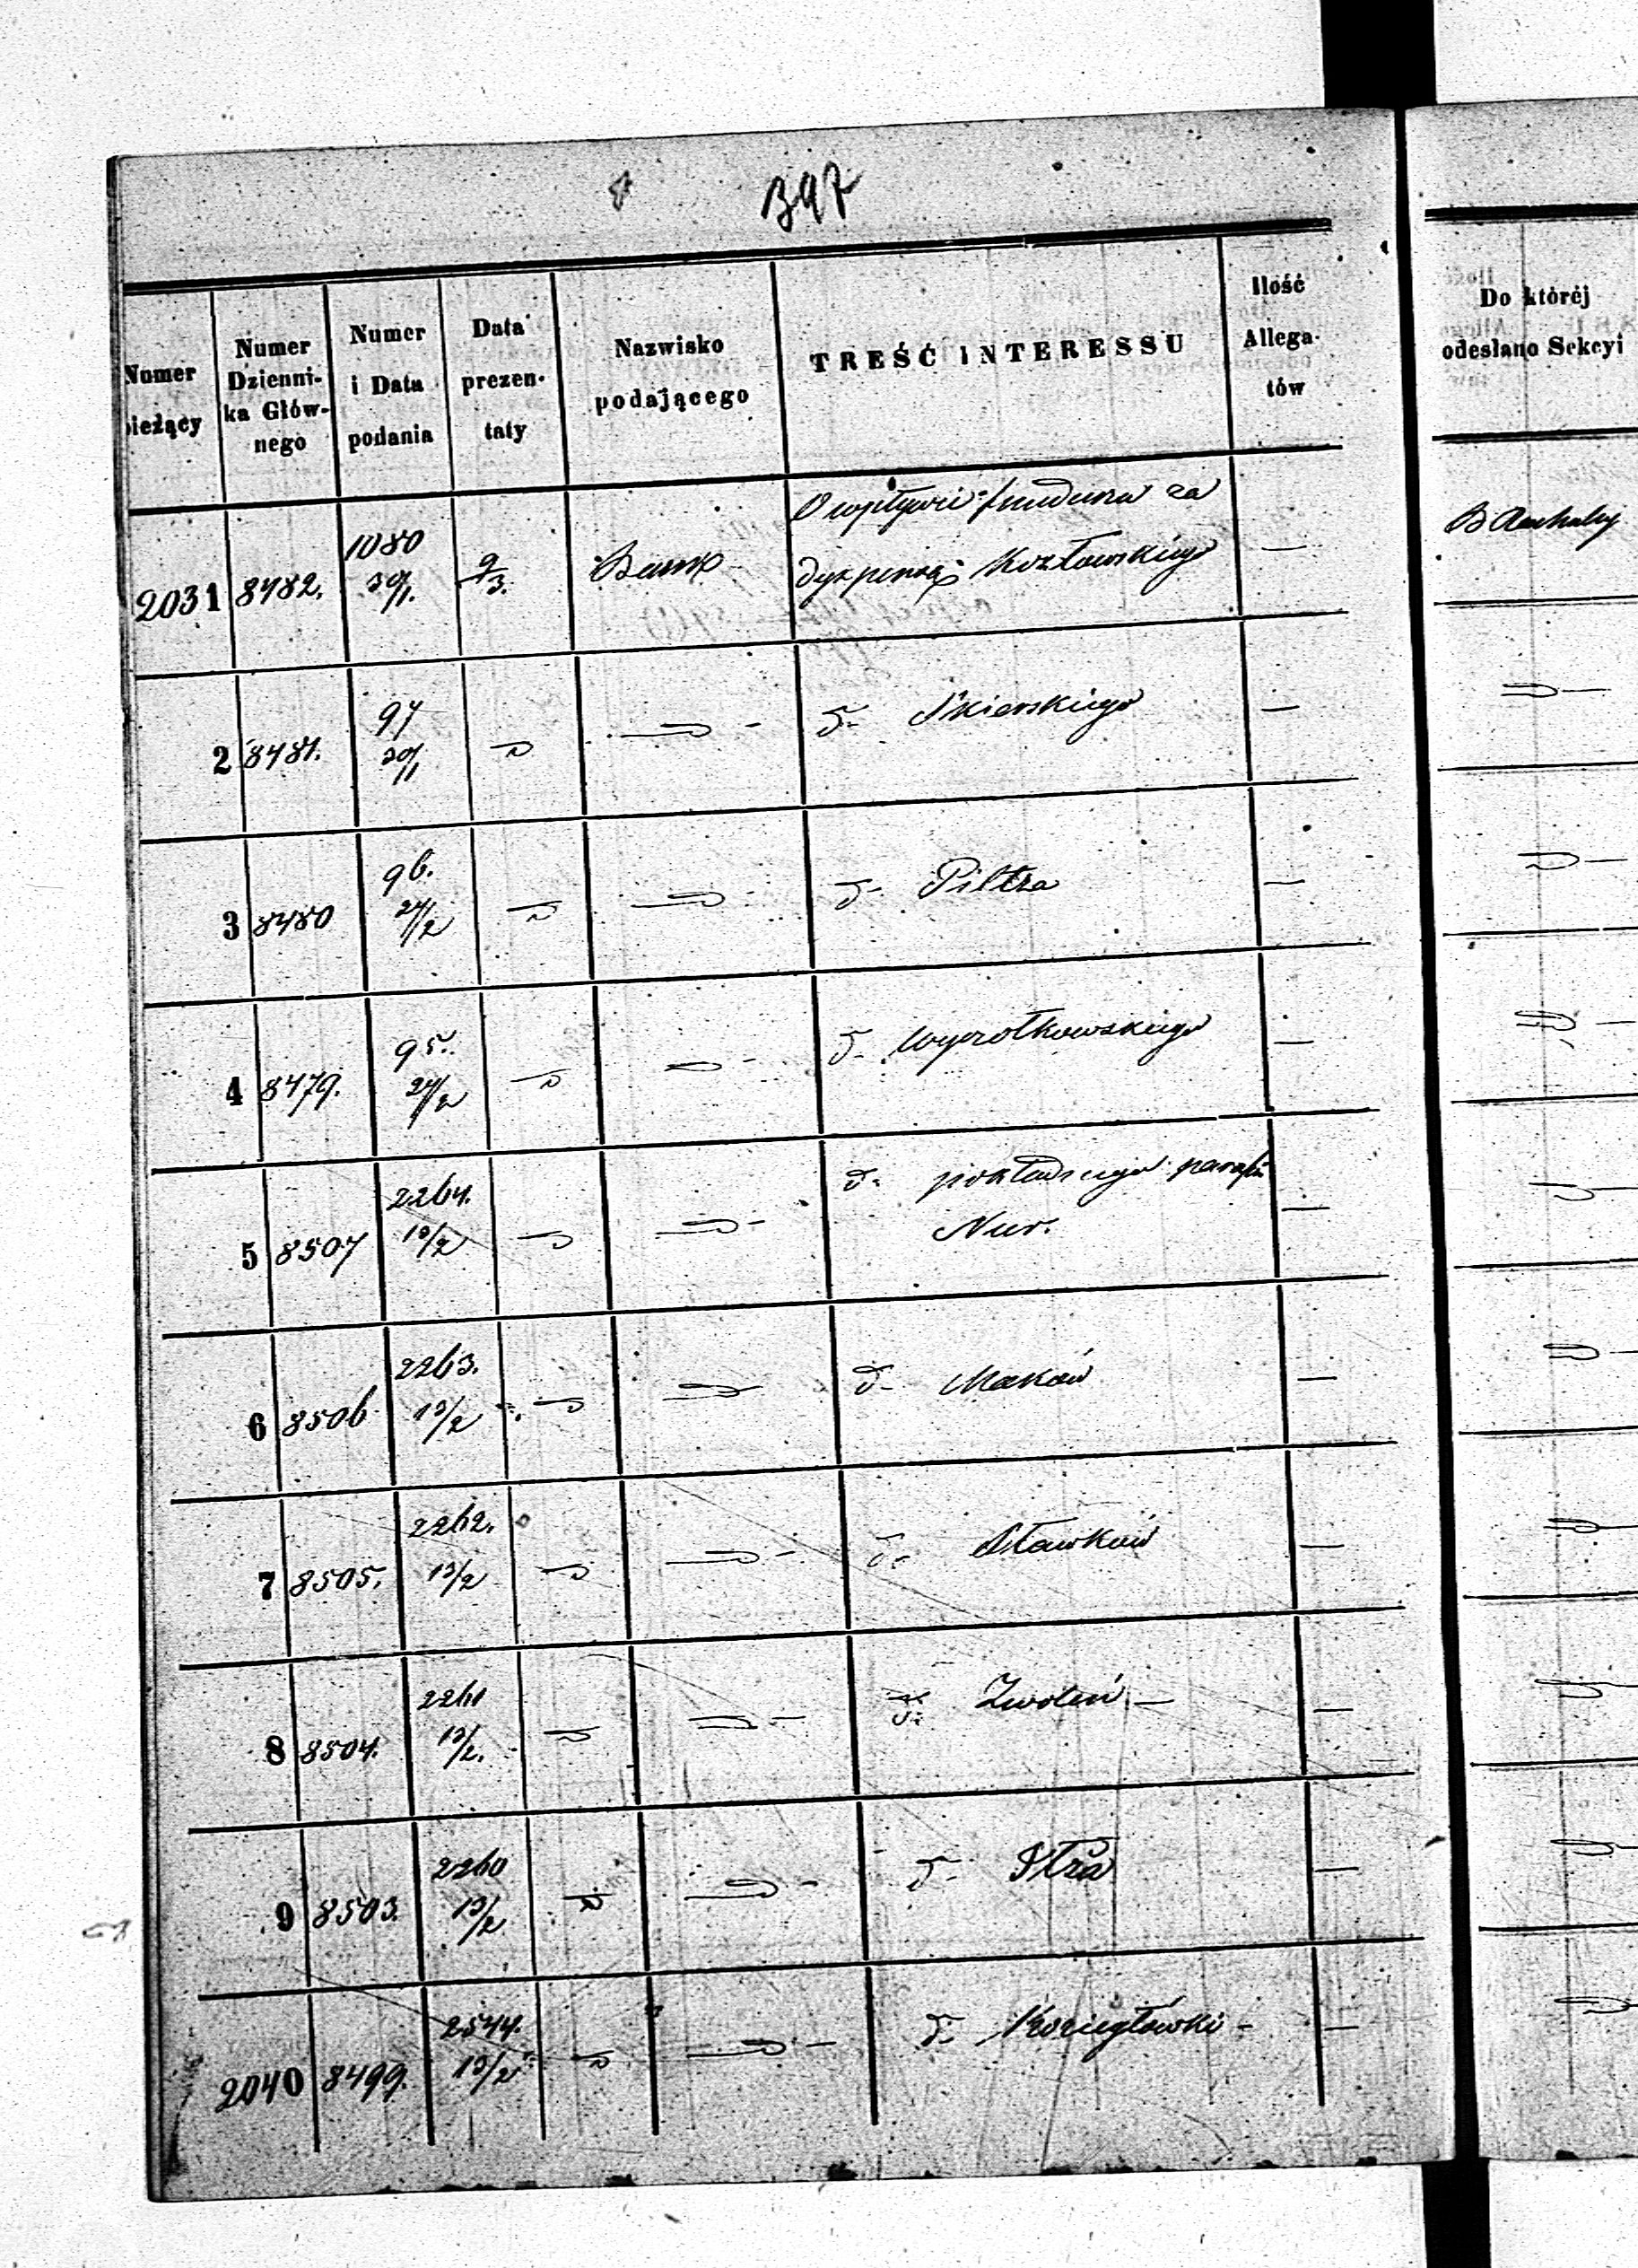 397
Numer bieżący
Numer Dzienni- ka Głów- nego
Numer i Data podania
Data prezen- taty
Nazwisko podającego
TREŚĆ INTERESSU
Ilość Allega- tów
Do któréj odesłano Sekcyi
2031 8482. 1080 30/1. 9/3. Bank O wpływie funduszu za —
dyspensę Kozłowskiego
2 8481. 97 30/1 d- Skierskiego —
3 8480 96. 24/2 d- Piltza —
4 8479. 95. 24/2 d- Wyrotkowskiego —
5 8507 2264. 13/2 d- pokładnego parafii —
Nur.
6 8506 2263. 13/2 d- Maków —
7 8505. 2262. 13/2 d- Sławków —
8 8504. 2261 13/2. d- Zwoleń —
9 8503. 2260 13/2 d- Iłża —
2040 8499. 2544. 13/2 d- Koziegłówki —